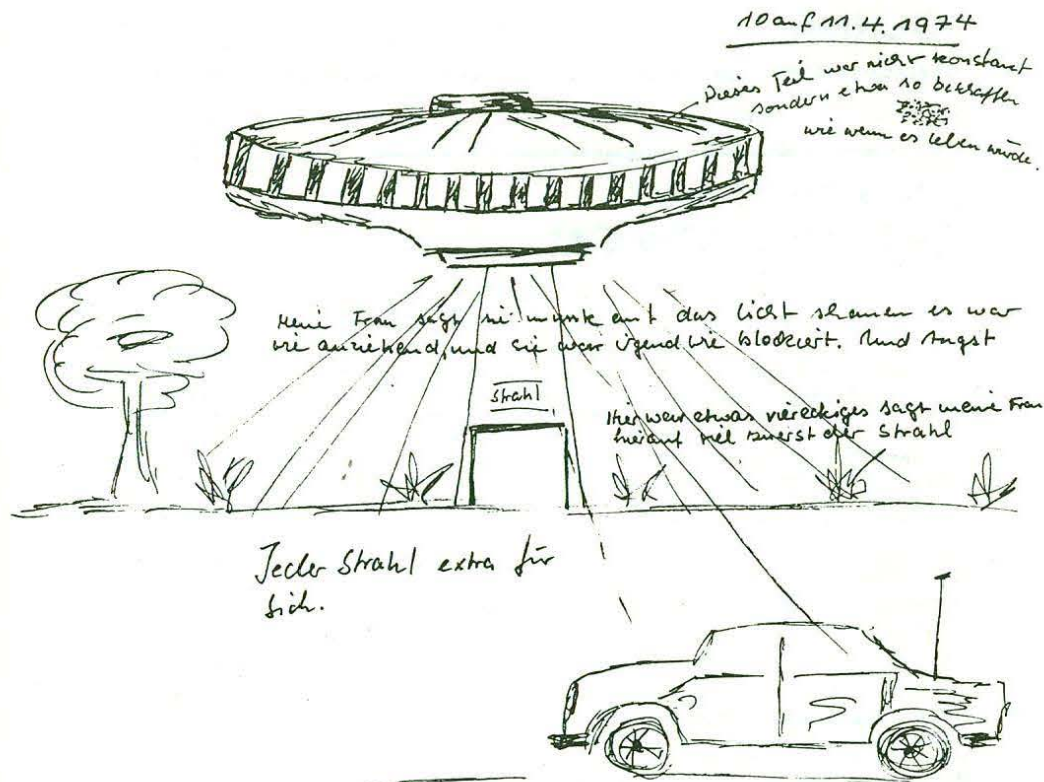 10 auf 11.4.1974
Dieses Teil war nicht konstant
sondern etwa so beschaffen
wie wenn es leben würde.
Meine Frau sagt sie musste auf das Licht schauen es war
wie anziehend, und sie war irgendwie blockiert. Und Angst
Strahl
Hier war etwas viereckiges sagt meine Frau
hierauf fiel zuerst der Strahl
Jeder Strahl extra für
sich.